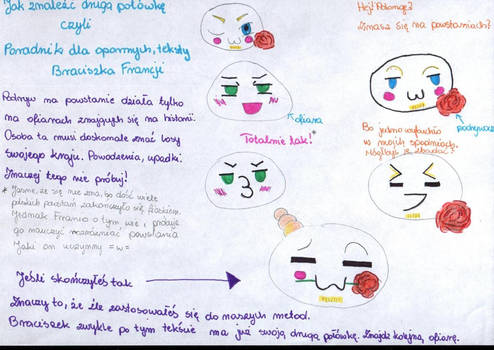 Jak znaleźć drugą połówkę
czyli
Poradnik dla opornych, teksty
Braciszka Francji
Podryw na powstanie działa tylko
na ofiarach znających się na historii.
Osoba ta musi doskonale znać losy
swojego kraju. Powodzenia, upadki.
Inaczej tego nie próbuj!
* Jasne, że się nie zna, bo dość wiele
polskich powstań zakończyło się fiaskiem.
Jednak Francja o tym wie, próbuje
go nauczyć wzniecać powstania
Jaki on uczynny =w=
Jeśli skończyłeś tak
Znaczy to, że źle zastosowałeś się do naszych metod.
Braciszek zwykle po tym tekście ma już swoją drugą połówkę. Znajdź kolejną ofiarę.
ofiara
Totalnie tak!*
Hej! Polonge?
Znasz się na powstaniach?
podrywacz
Bo jedno wybuchło
w moich spodniach.
Mógłbyś je zbadać?